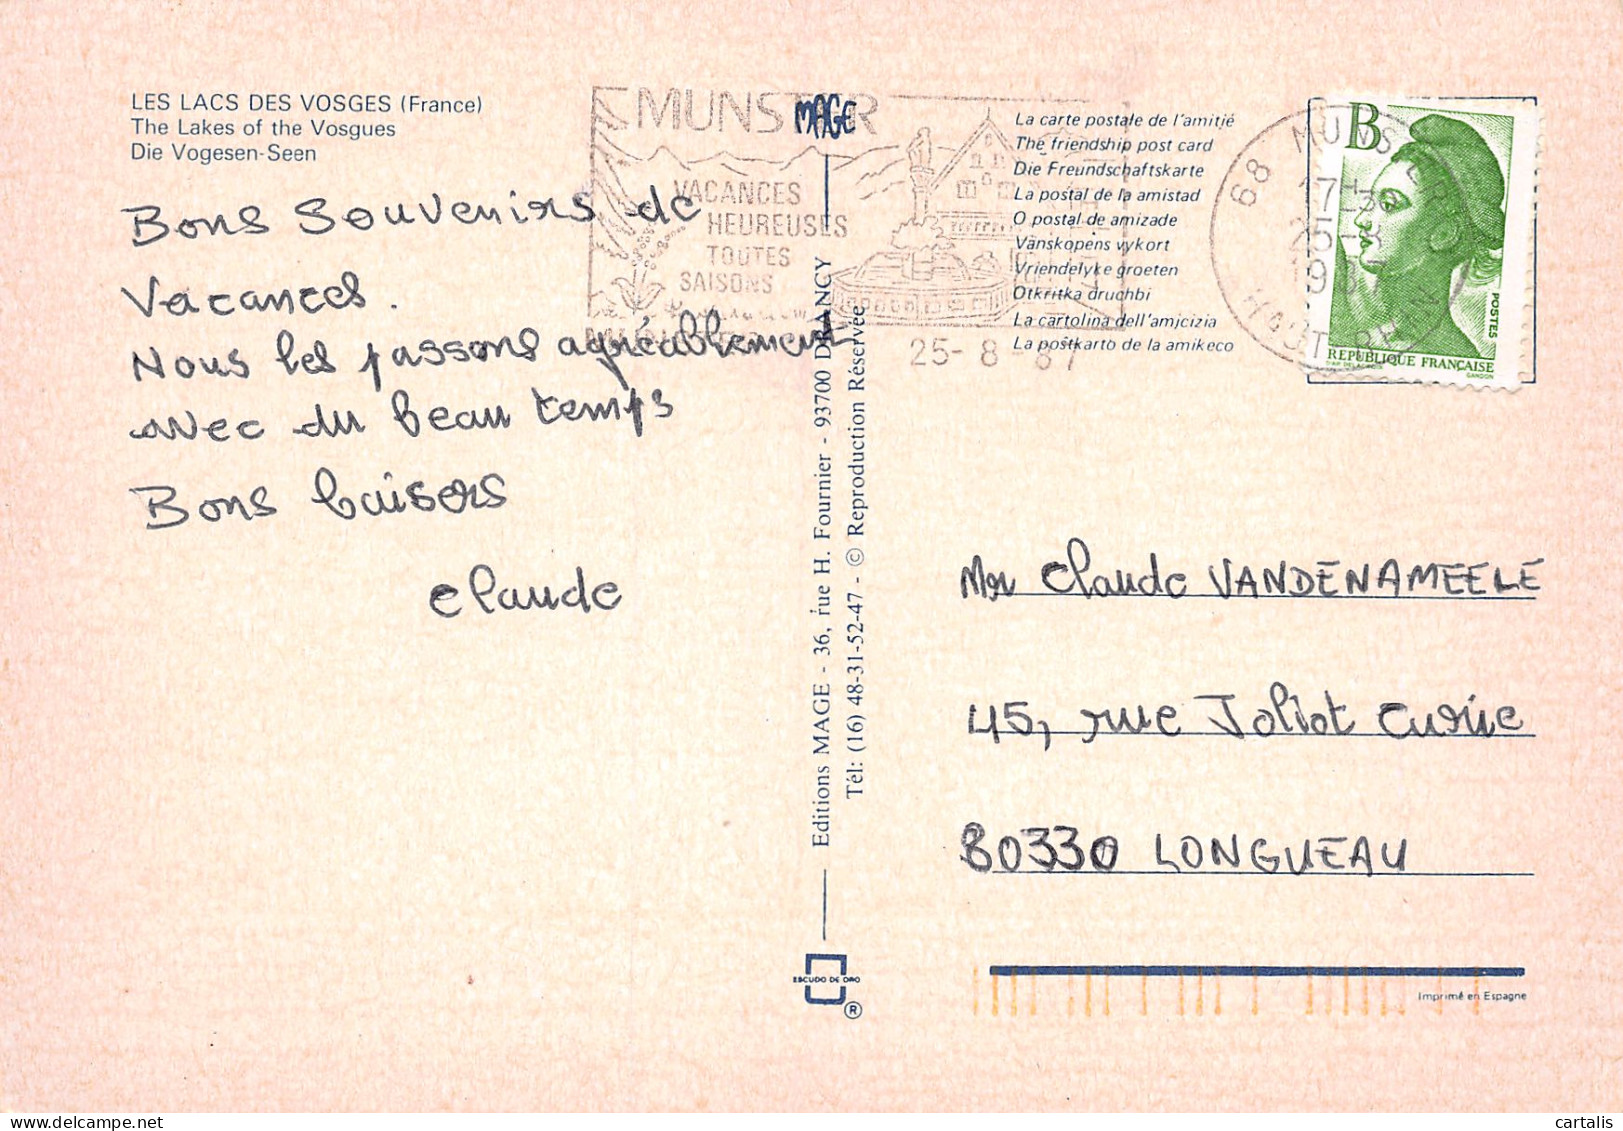 LES LACS DES VOSGES (France)
The Lakes of the Vosgues
Die Vogesen-Seen
Bons Souvenirs de
Vacances.
Nous les passons agréablement
avec du beau temps
Bons baisers
Claude
MUNSTER
VACANCES
HEUREUSES
TOUTES
SAISONS
25-8-87
MAGE
Editions MAGE - 36, rue H. Fournier - 93700 DRANCY
Tél: (16) 48-31-52-47 - © Reproduction Réservée
ESCUDO DE ORO
®
La carte postale de l'amitié
The friendship post card
Die Freundschaftskarte
La postal de la amistad
O postal de amizade
Vänskopens vykort
Vriendelyke groeten
Otkritka druchbi
La cartolina dell'amjcizia
La postkarto de la amikeco
68 MUNSTER
25-8
1987
HAUT RHIN
B
POSTES
REPUBLIQUE FRANÇAISE
D'AP. DELACROIX GANDON
Mr Claude VANDENAMEELE
45, rue Joliot Curie
80330 LONGUEAU
Imprimé en Espagne
cartalis